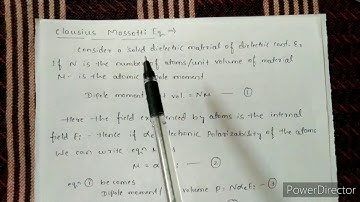 Clausius Mossotti Eq. ⇒
Consider a solid dielectric material of dielectric const. Er
If N is the number of atoms/unit volume of material
μ- is the atomic dipole moment
Dipole vol = Nμ — ①
-Here the field experienced by atoms is the internal
field Ei - Hence if αe electronic Polarizability of the atoms
We can write eqn
μ = α — ②
eqn ① becomes
Dipole moment/ volume P = NαeEi — ③
PowerDirector